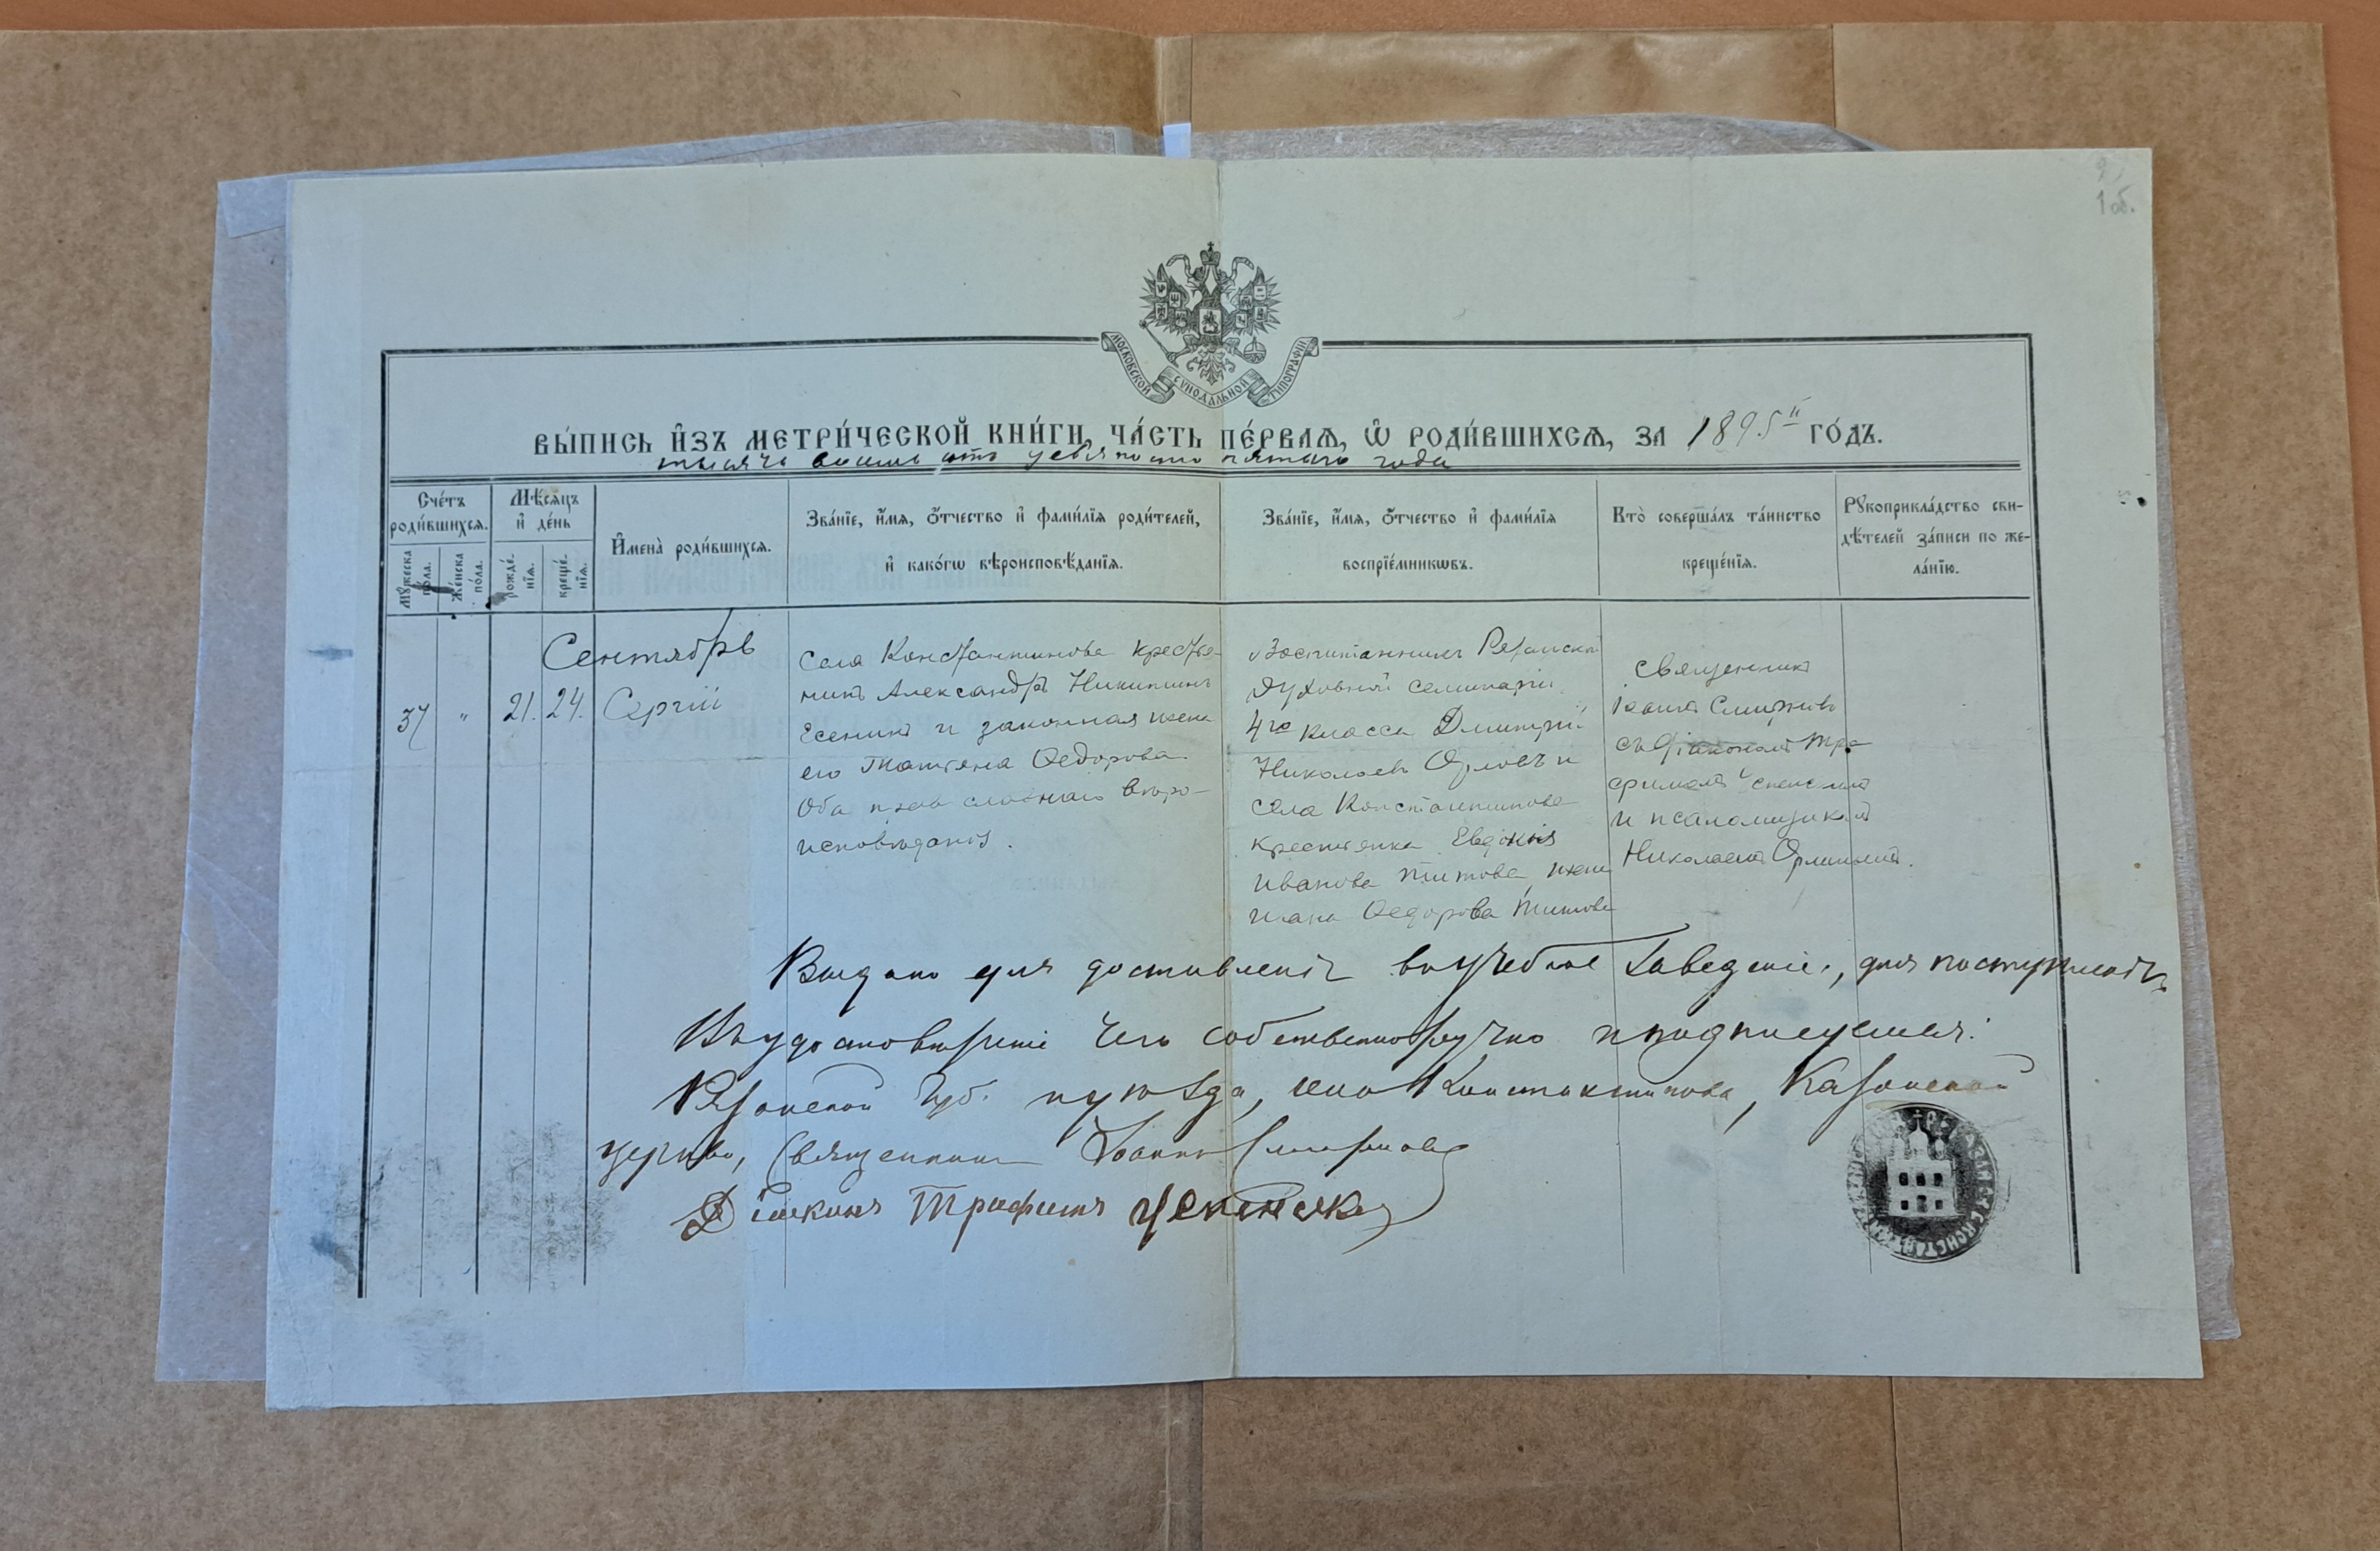 1 об.
МОСКОВСКОЙ СѴНОДАЛЬНОЙ ТИПОГРАФІИ
ВЫ́ПИСЬ И҆ЗЪ МЕТРИ́ЧЕСКОЙ КНИ́ГИ, ЧА́СТЬ ПЕ́РВАѦ, Ѡ҆ РОДИ́ВШИХСѦ, ЗА 1895й ГО́ДЪ.
тысяча восемь сотъ девяносто пятаго года
Сче́тъ роди́вшихсѧ.
Мѣ́сѧцъ и҆ де́нь
И҆мена̀ роди́вшихсѧ.
Зва́нїе, и҆́мѧ, ѻ҆́тчество и҆ фами́лїѧ роди́телей,
и҆ како́гѡ вѣроисповѣ́данїѧ.
Зва́нїе, и҆́мѧ, ѻ҆́тчество и҆ фами́лїѧ
воспрїе́мникѡвъ.
Кто̀ соверша́лъ та́инство
креще́нїѧ.
Рꙋкоприкла́дство сви-
дѣ́телей за́писи по же-
ла́нїю.
Мꙋ́жеска по́ла.
Же́нска по́ла.
рожде́-
нїѧ.
креще́-
нїѧ.
Сентябрь
37 " 21. 24. Сергій
Села Константинова крестья-
нинъ Александръ Никитинъ
Есенинъ и законная жена
его Татіяна Ѳедорова.
Оба православнаго вѣро-
исповѣданія.
Воспитанникъ Рязанской
духовной семинаріи
4го класса Дмитрій
Николаевъ Орловъ и
села Константинова
крестьянка Евдокія
Иванова Титова, жена
Ѳедорова Титова
Священникъ
Іоаннъ Смирновъ
съ діакономъ Тро
фимомъ
и псаломщикомъ
Николаемъ
Выдано для доставленія въ учебное заведеніе, для поступленія,
Въ удостовѣреніе чего собственноручно и подписуемся:
Рязанской Губ. и уѣзда, села Константинова, Казанской
церкви, Священникъ Іоаннъ Смирновъ
Діаконъ Трофимъ